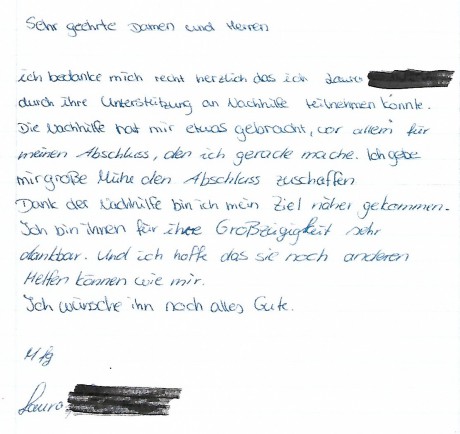 Sehr geehrte Damen und Herren
ich bedanke mich recht herzlich das ich Laura
durch ihre Unterstützung an Nachhilfe teilnehmen konnte.
Die Nachhilfe hat mir etwas gebracht, vor allem für
meinen Abschluss, den ich gerade mache. Ich gebe
mir große Mühe den Abschluss zuschaffen
Dank der Nachhilfe bin ich mein Ziel näher gekommen.
Ich bin ihnen für ihre Großzügigkeit sehr
dankbar. Und ich hoffe das sie noch anderen
Helfen können wie mir.
Ich wünsche ihn noch alles Gute.
Mfg
Laura